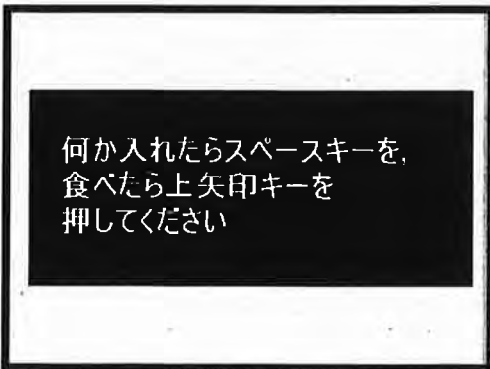 何か入れたらスペースキーを,
食べたら上矢印キーを
押してください